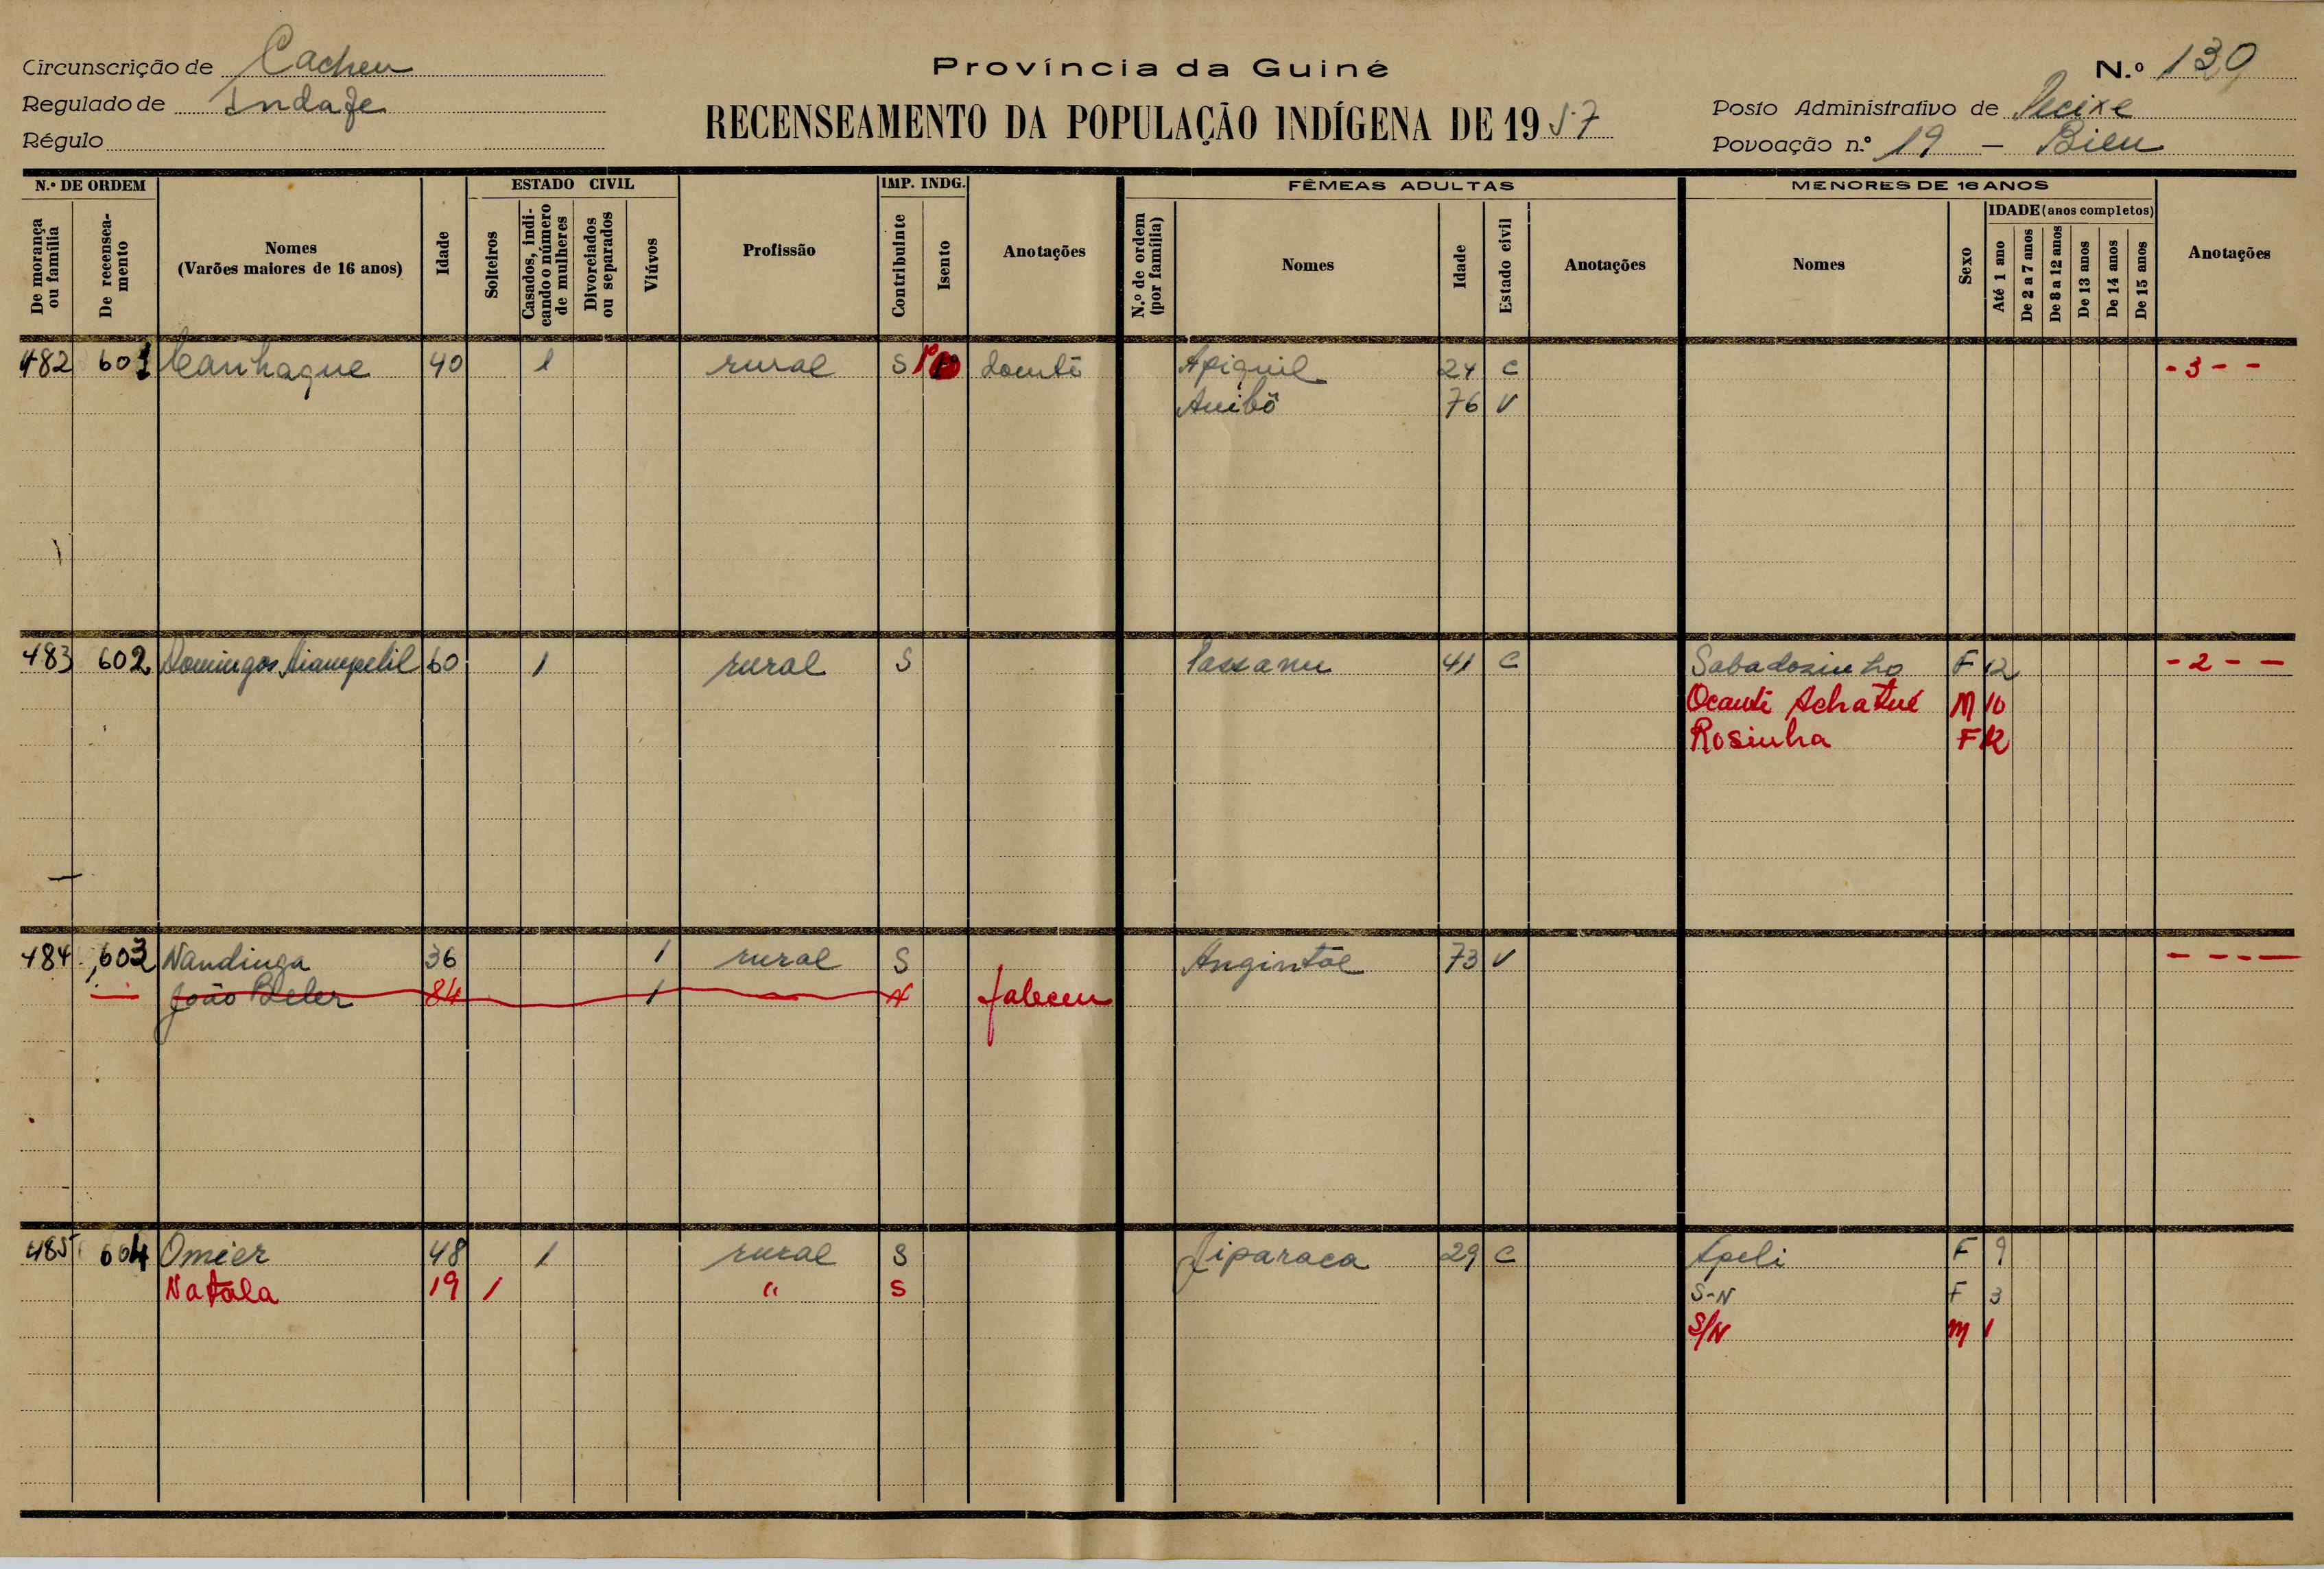 Circunscrição de Cacheu
Regulado de Indafe
Régulo
Província da Guiné
RECENSEAMENTO DA POPULAÇÃO INDÍGENA DE 1957
N.º 130
Posto Administrativo de Pecixe
Povoação n.º 19 - Bieu
N.º DE ORDEM
De morança ou família
De recenseamento
Nomes
(Varões maiores de 16 anos)
Idade
ESTADO CIVIL
Solteiros
Casados, indicando o número de mulheres
Divorciados ou separados
Viúvos
Profissão
IMP. INDG.
Contribuinte
Isento
Anotações
FÊMEAS ADULTAS
N.º de ordem (por família)
Nomes
Idade
Estado civil
Anotações
MENORES DE 16 ANOS
Nomes
Sexo
IDADE (anos completos)
Até 1 ano
De 2 a 7 anos
De 8 a 12 anos
De 13 anos
De 14 anos
De 15 anos
Anotações
482 601 Canhaque 40 1 rural S doente Apiquil 24 C - 3 - -
Anibô 76 V
483 602 Domingos 60 1 rural S Passanu 41 C Sabadozinho F 12 - 2 - -
Ocante Achatué M 10
Rosinha F 12
484 603 Nandinga 36 1 rural S Angintoe 73 V - - - -
João Beler 84 1 faleceu
485 604 Omier 48 1 rural S Jiparaca 29 C Apeli F 9
Natala 19 1 " S S-N F 3
S/N M 1